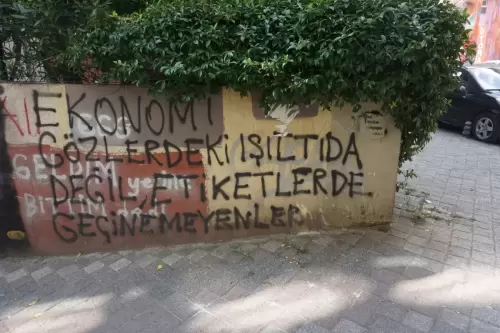 EKONOMİ
GÖZLERDEKİ IŞILTIDA
DEĞİL, ETİKETLERDE
GEÇİNEMEYENLER